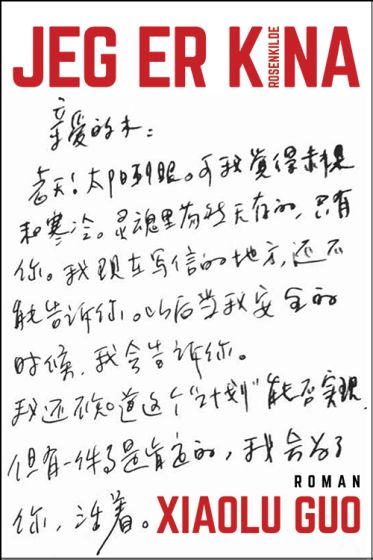 JEG ER KINA
ROSENKILDE
亲爱的木:
老天!太阳刺眼。可我觉得
和寒冷。灵魂里 的,只有
你。我现在写信的地方,还不
能告诉你。以后当我安全的
时候,我会告诉你。
我还不知道这个“计划”能否实现,
但有一件事是肯定的,我会为了
你,活着。
ROMAN
XIAOLU GUO